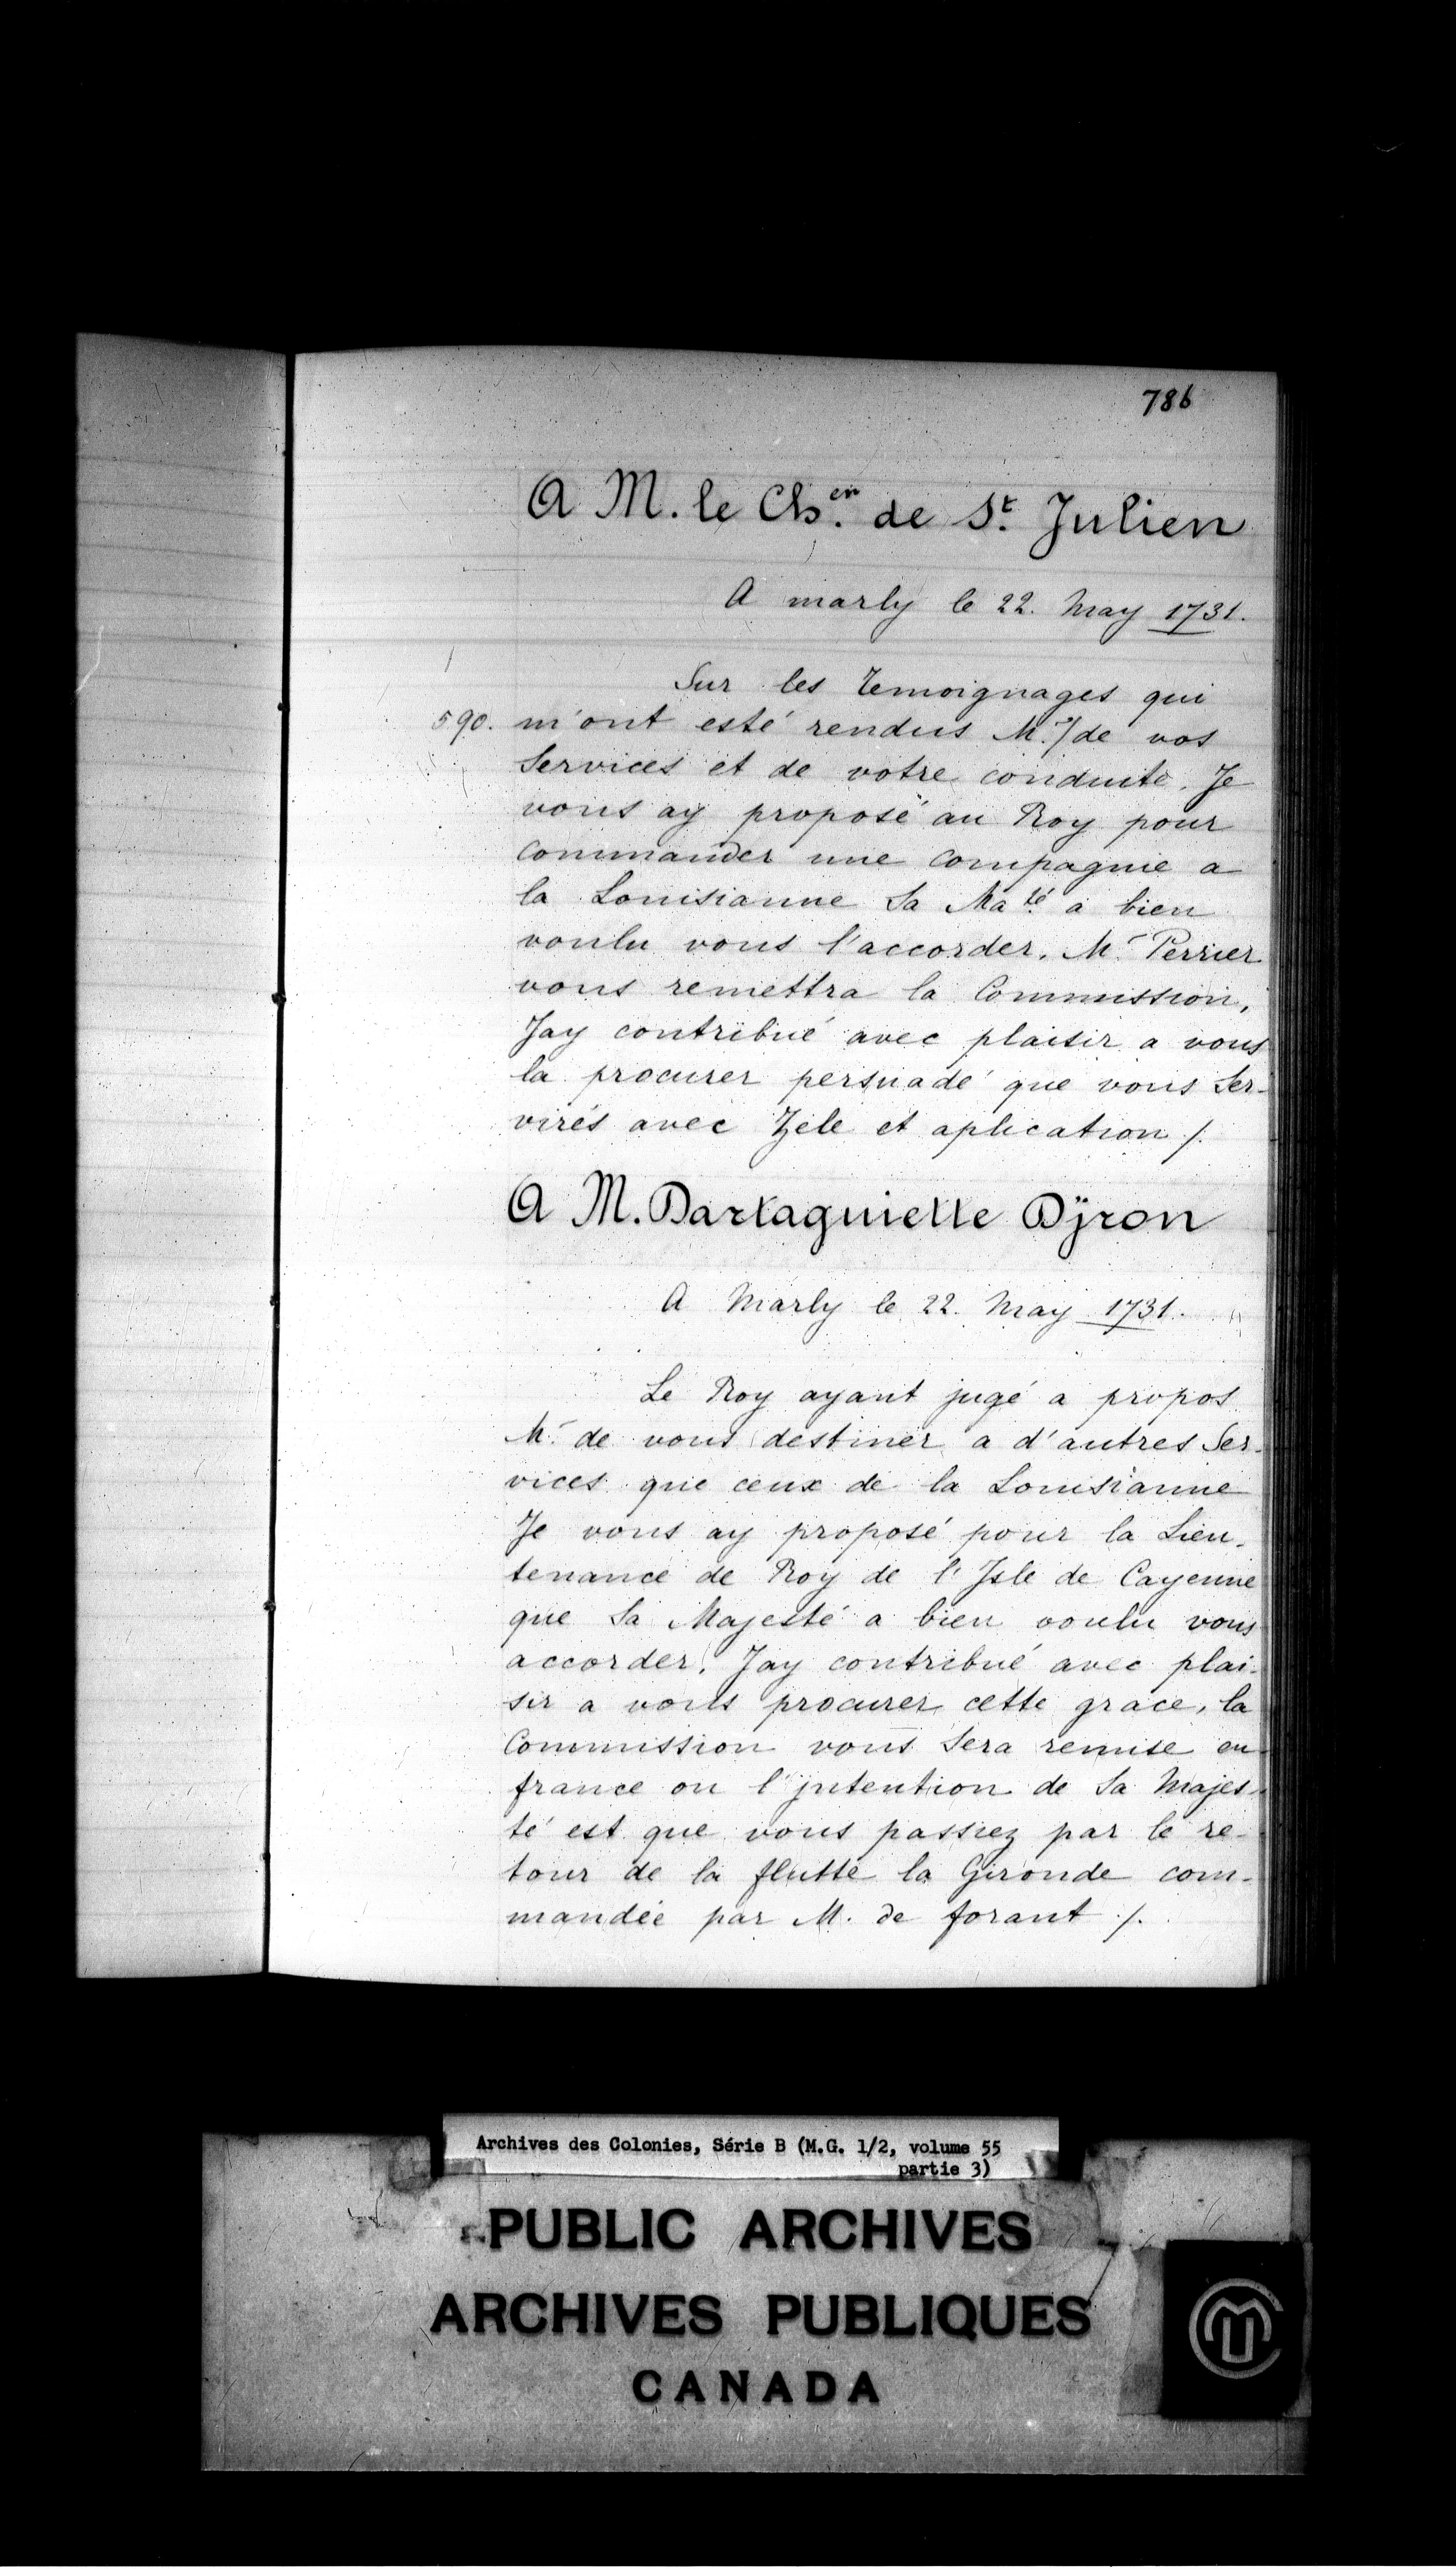 786
A M. le Ch.er de St. Julien
A marly le 22. May 1731.
Sur les temoignages qui
590. m'ont esté rendus M.r/de vos
Services et de votre conduite. Je
vous ay proposé au Roy pour
commander une compagnie a
la Louisianne Sa Ma.té a bien
voulu vous l'accorder. M.r Perrier
vous remettra la Commission,
Jay contribué avec plaisir a vous
la procurer persuadé que vous Ser-
virés avec Zele et aplication /.
A M. Dartaguiette Dÿron
A Marly le 22. May 1731.
Le Roy ayant jugé a propos
M.r de vous destiner a d'autres Ser-
vices que ceux de la Louisianne
Je vous ay proposé pour la Lieu-
tenance de Roy de l'Isle de Cayenne
que Sa Majesté a bien voulu vous
accorder. Jay contribué avec plai-
sir a vous procurer cette grace, la
Commission vous Sera remise en
france ou l'jntention de Sa Majes-
té est que vous passiez par le re-
tour de la flutte la Gironde com-
mandée par M. de forant /.
Archives des Colonies, Série B (M.G. 1/2, volume 55
partie 3)
PUBLIC ARCHIVES
ARCHIVES PUBLIQUES
CANADA